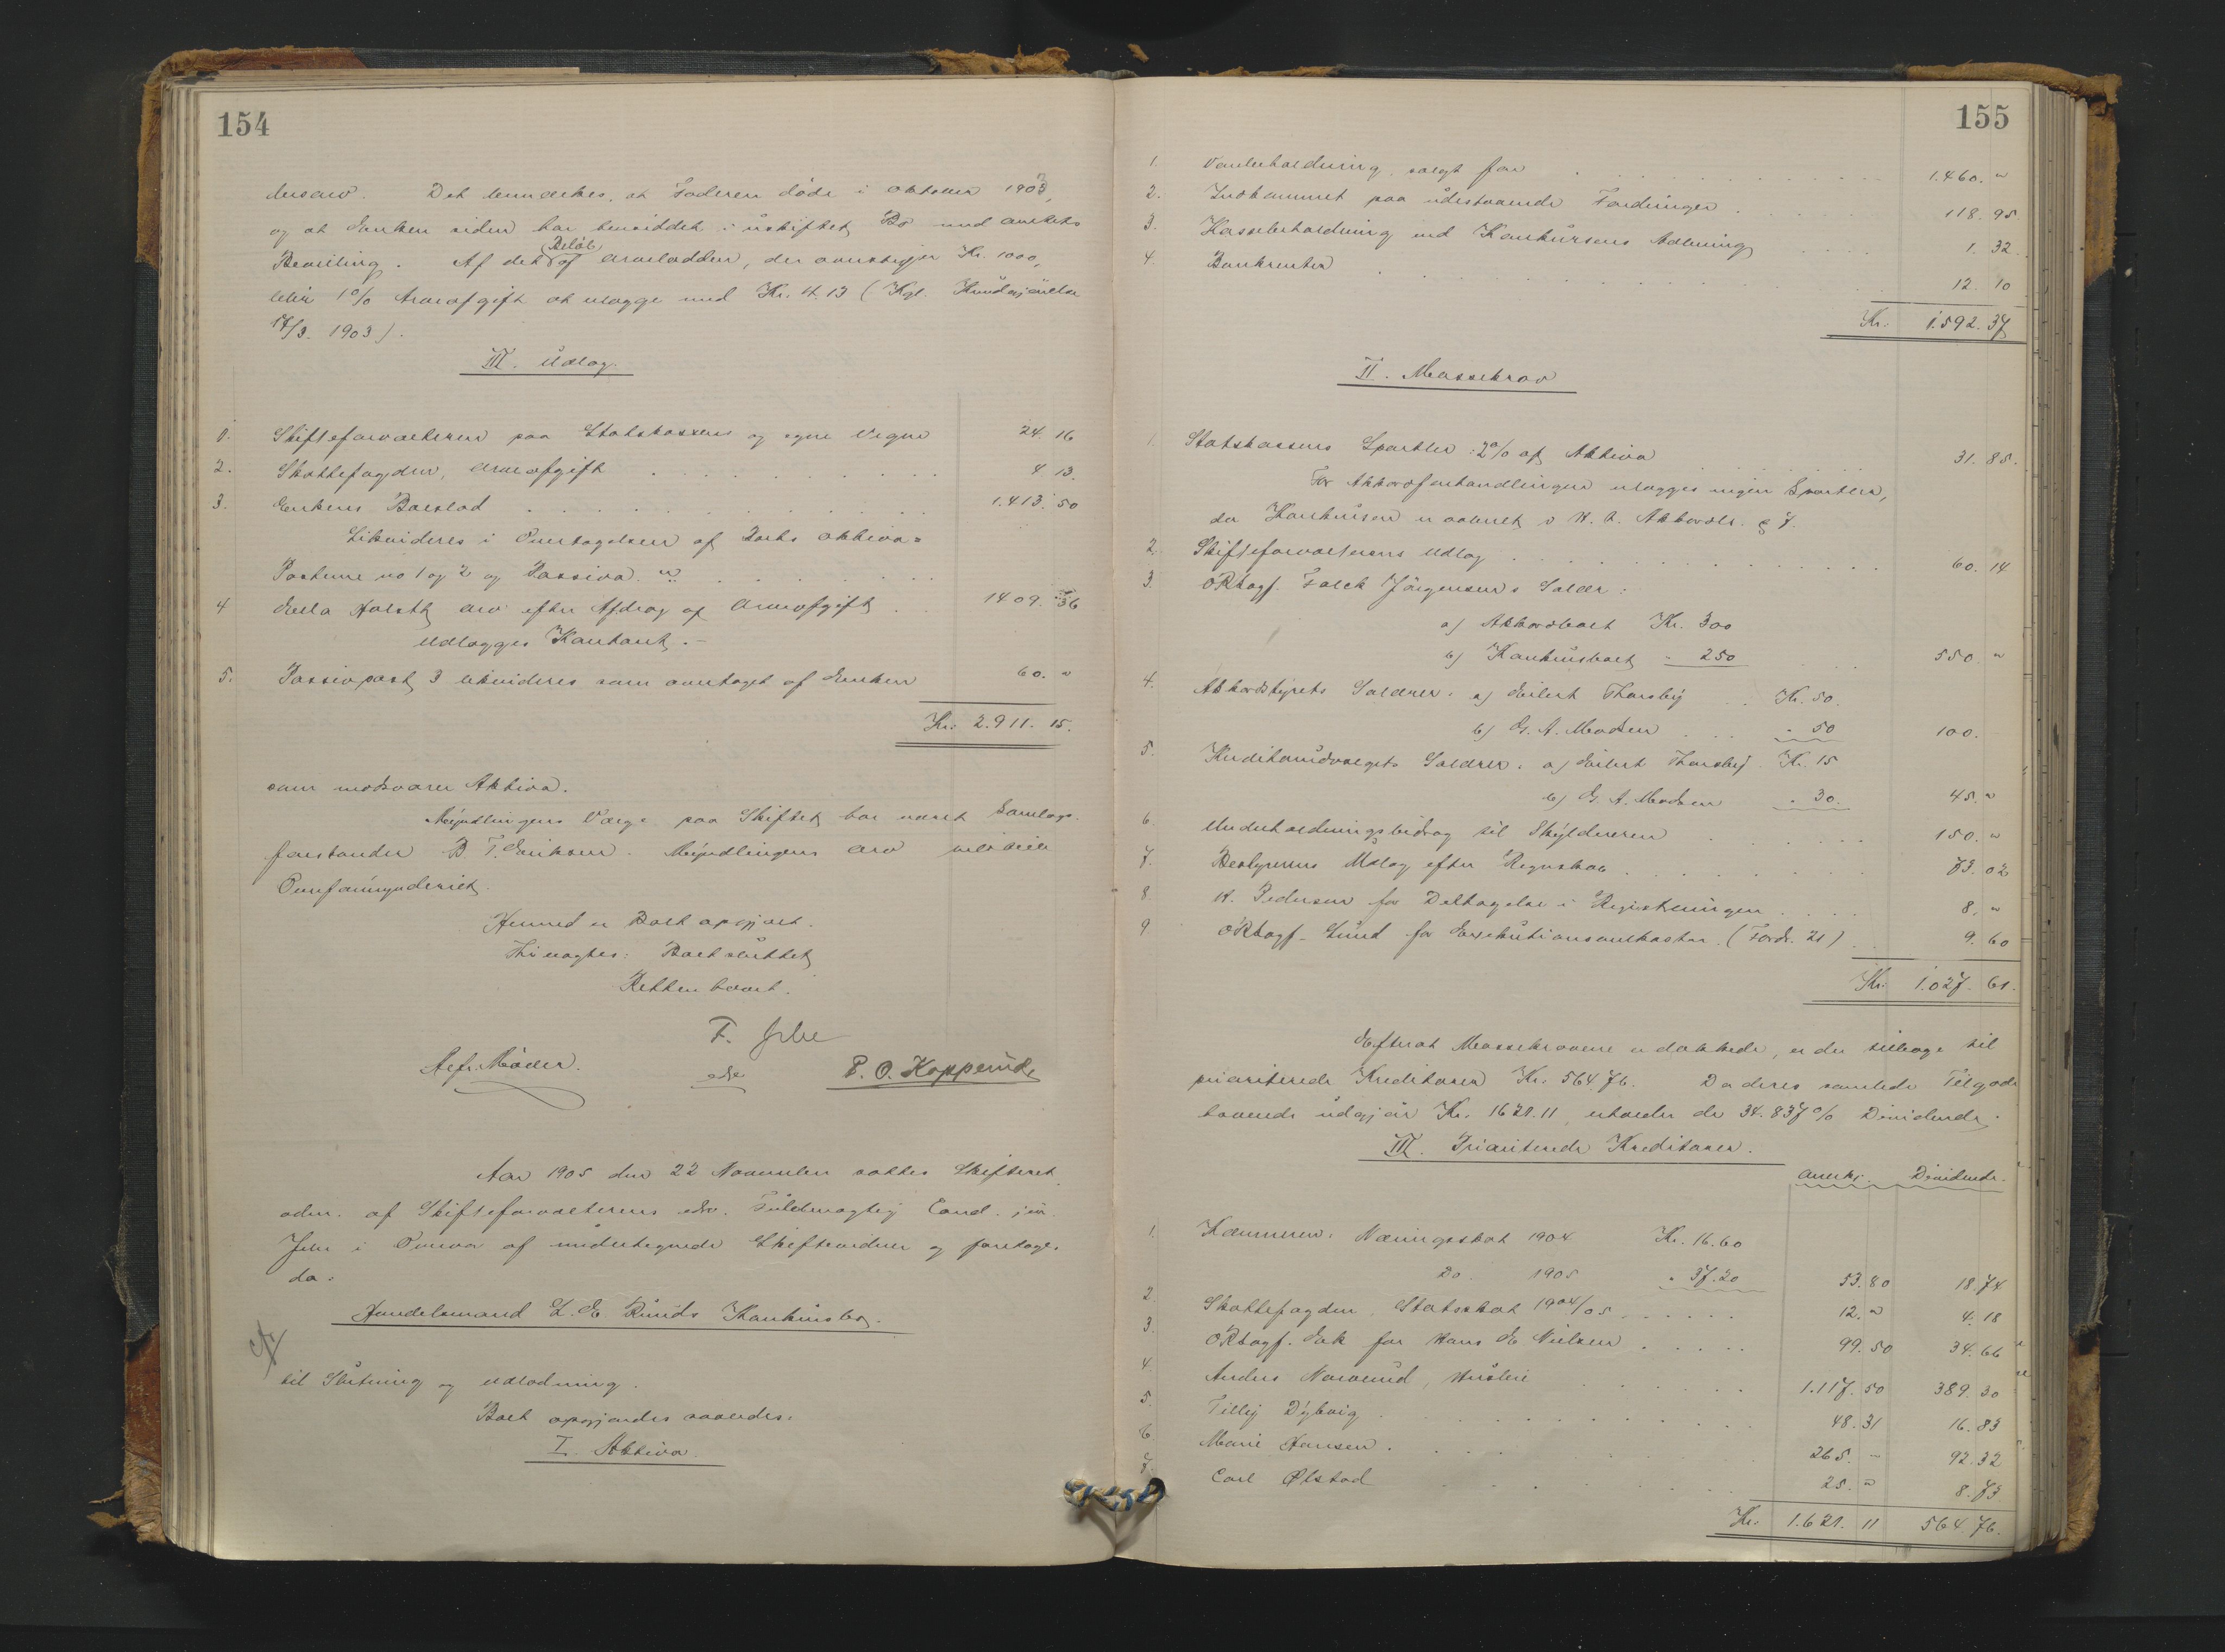 154
dersarv. Det bemærkes, at Faderen döde i Oktober 1903,
og at Enken siden har hensiddet i uskiftet Bo med Amtets
Bevilling. Af det Beløb af Arvelodden, der overstiger Kr. 1000,
blir 1% Arveafgift at udlægge med Kr. 4.13 (Kgl. Kundgjörelse
17/3. 1903).
III. Udlæg.
1. Skifteforvalteren paa Statskassens og egne Vegne 24. 16
2. Skattefogden, Arveafgift 4. 13.
3. Enkens Boeslod 1.413. 50
Likvideres i Overtagelsen af Boets Aktiva-
Posterne no 1 og 2 og Passiva. "
4 Holsth Arv efter Afdrag af Arveafgift 1409. 36
udlægges Kontant.-
5. Passivpost 3 likvideres som overtaget af Enken 60. "
Kr: 2.911. 15.
som modsvarer Aktiva.
Myndlingens Værge paa Skiftet har været Samlags-
forstander B. T. Eriksen. Myndlingens Arv tilstilles
Overformynderiet.
Hermed er Boet opgjort.
Thi vragtes: Boet sluttet
Retten hævet.
F. Jebe
edsv
Alfr. Moder. P. O. Kopperud.
Aar 1905 den 22 November sattes Skifteret,
adm. af Skifteforvalterens edsv. Fuldmægtig Cand. jur.
Jebe i Overvær af undertegnede Skiftevidner og foretoges
da:
Handelsmand L. E. Ruuds Konkursbo.
til Slutning og Udlodning.
Boet opgjordes saaledes:
I. Aktiva.
155
1. Varebeholdning, solgt for 1.460. "
2. Indkommet paa udestaaende Fordringer 118. 95
3. Kassebeholdning ved Konkursens Aabning 1. 32.
4. Bankrenter 12. 10
Kr: 1.592. 37
II. Massekrav
1. Statskassens Sportler: 2% af Aktiva 31. 85.
For Akkordforhandlingen udlægges ingen Sportler,
da Konkursen er aabnet i H. t. Akkordl. § 7.
2. Skifteforvalterens Udlæg 60. 14
3. ORsagf. Falck Jörgensens Salær:
a) Akkordboet Kr. 300
b) Konkursboet " 250 550. "
4. Akkordstyrets Salærer: a) Eilert Thorsby Kr. 50.
b) G. A. Madsen " 50 100.
5. Kreditorudvalgets Salærer: a) Eilert Thorsby Kr. 15
b) G. A. Madsen " 30. 45. "
6. Underholdningsbidrag til Skyldneren 150. "
7. Bestyrerens Udlæg efter Regnskab 73. 02
8. H. Pedersen for Deltagelse i Registreringen 8. "
9 ORsagf. Lund for Exekutionsomkostn. (Fordr. 21) 9. 60
Kr: 1.027. 61.
Efterat Massekravene er dækkede, er der tilbage til
prioriterede Kreditorer Kr. 564.76. Da deres samlede Tilgode-
havende udgjör Kr. 1621.11, erholder de 34.837% Dividende.
III. Prioriterede Kreditorer.
Anerkj. Dividende.
1. Kæmneren: Næringsskat 1904 Kr. 16.60
Do. 1905 " 37.20 53.80 18.74
2. Skattefogden, Statsskat 1904/05 12. " 4. 18
3. ORsagf. Eek for Hans E. Nielsen 99. 50 34. 66
4. Anders Narverud, Husleie 1.117. 50 389. 30
5. Tilly Dybvig 48. 31 16. 83
6 Marie Hansen. 265. " 92. 32
7. Carl Ølstad 25. " 8. 73
Kr: 1.621. 11 564. 76.